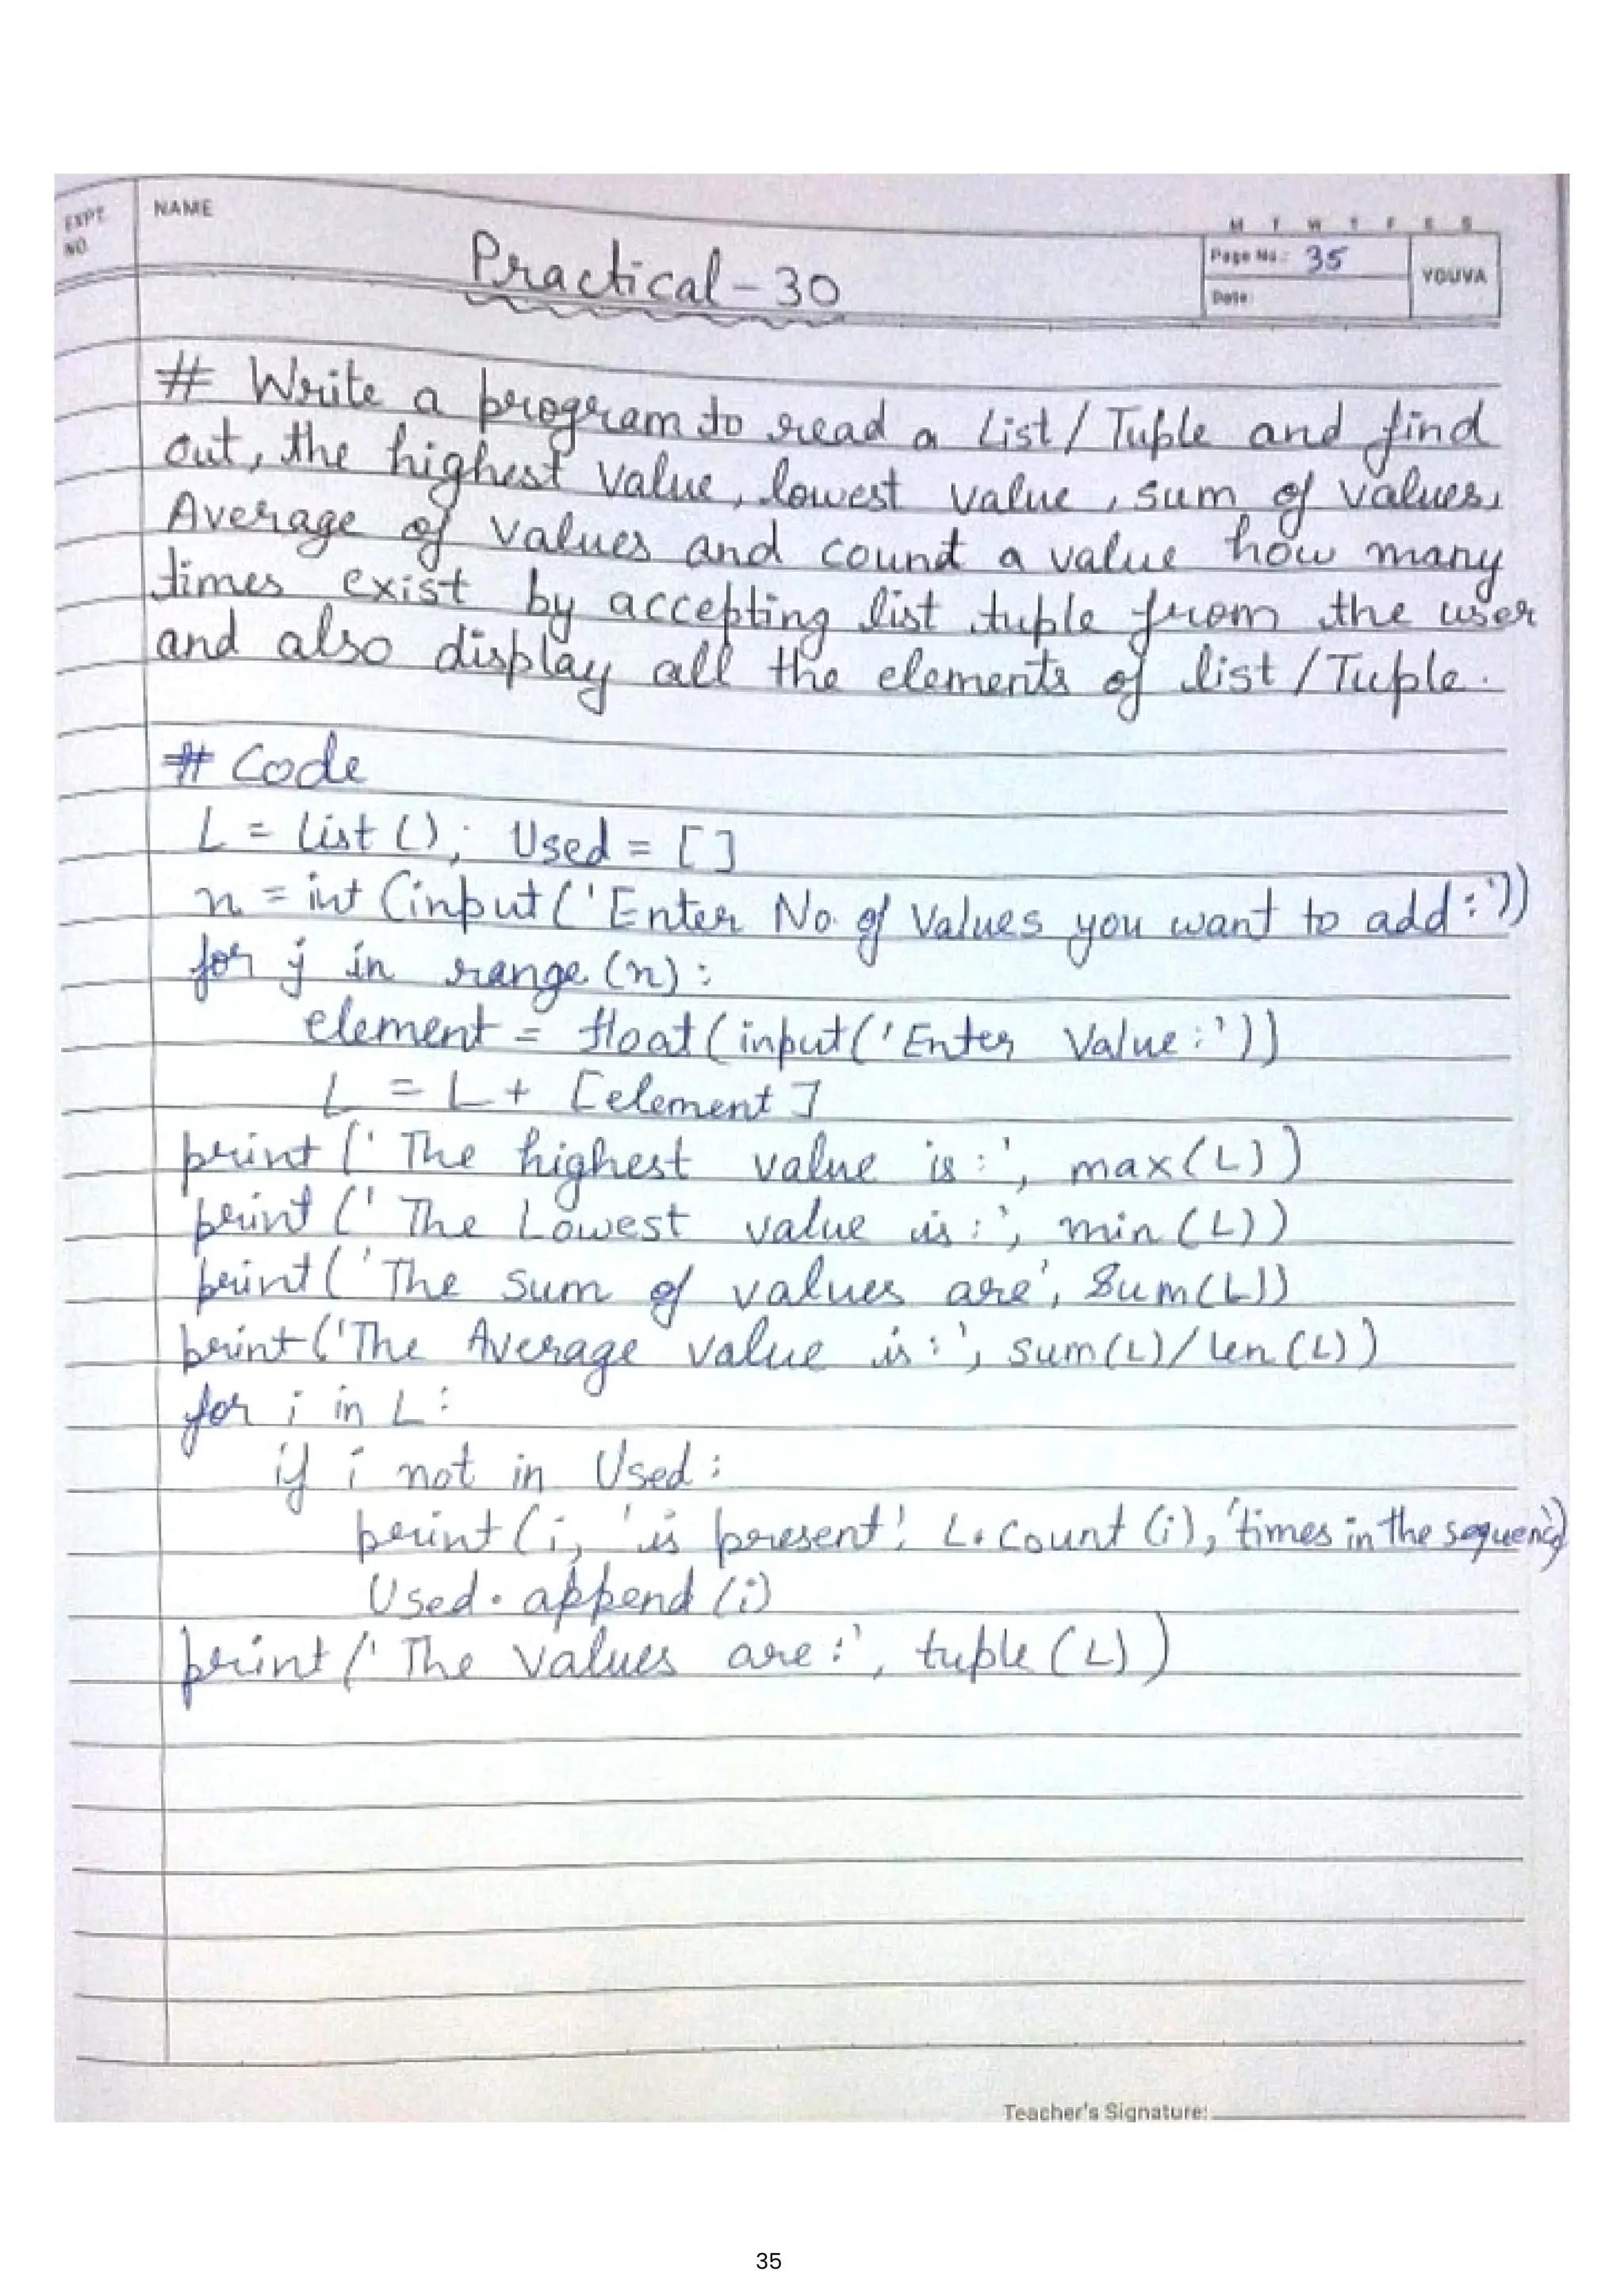 EXPT.
NO.
NAME
M T W T F S S
Practical-30
Page No.: 35
YOUVA
Date:
# Write a program to read a List/Tuple and find
out, the highest value, lowest value, sum of values,
Average of values and count a value how many
times exist by accepting list tuple from the user
and also display all the elements of list/Tuple.
# Code
L = list(); Used = []
n = int(input('Enter No. of Values you want to add:'))
for j in range(n):
element = float(input('Enter Value:'))
L = L + [element]
print('The highest value is:', max(L))
print('The Lowest value is:', min(L))
print('The sum of values are', Sum(L))
print('The Average value is:', sum(L)/len(L))
for i in L:
if i not in Used:
print(i, 'is present', L.count(i), 'times in the sequence')
Used.append(i)
print('The values are:', tuple(L))
Teacher's Signature:
35